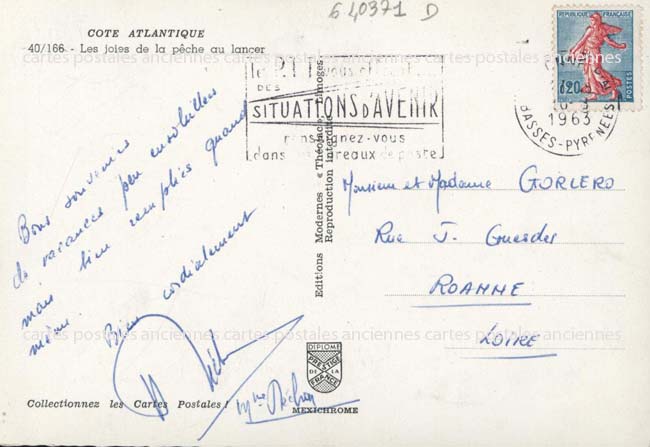 640371 D
COTE ATLANTIQUE
40/166 - Les joies de la pêche au lancer
REPUBLIQUE FRANÇAISE
0,20
POSTES
1963
BASSES-PYRENEES
DES
SITUATIONS D'AVENIR
renseignez-vous
dans bureaux de poste
Bons souvenirs
de vacances peu ensoleillées
mais bien remplies quand
même. Bien cordialement
Monsieur et Madame GORLERO
Rue J. Guesdes
ROANNE
LOIRE
Editions Modernes « Théojac » Limoges
Reproduction interdite
cartes postales anciennes cartes postales anciennes cartes postales anciennes
cartes postales anciennes cartes postales anciennes cartes postales anciennes
DIPLOME
PRESTIGE
DE LA
FRANCE
MEXICHROME
Collectionnez les Cartes Postales !
Mme